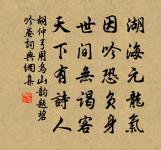 湖海元龍氣
因吟恐負身
世間無謁客
天下有詩人
胡仲弓用烏山韻題碧
吟卷詞典網集